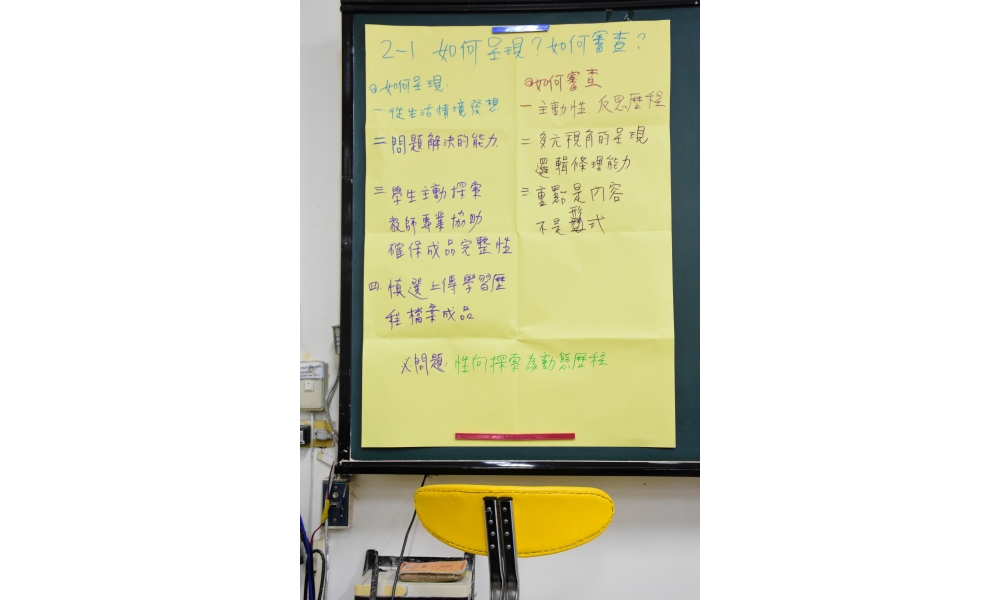 2-1 如何呈現?如何審查?
◎如何呈現
一 從生活情境發想
二 問題解決的能力
三 學生主動探索
教師專業協助
確保成品完整性
四. 慎選上傳學習歷
程檔案成品
◎如何審查
一 主動性. 反思歷程
二 多元視角的呈現
邏輯條理能力
三 重點是內容
不是形式
X問題: 性向探索為動態歷程